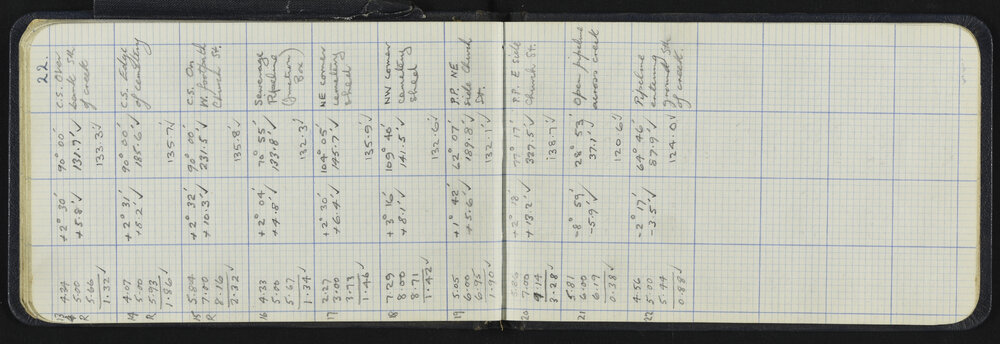 22.
13 4.34 +2° 30' 90° 00' C.S. Over
5.00 +5.8'✓ 131.9'✓ bank Sth.
R 5.66 133.3✓ of creek
1.32✓
14 4.07 +2° 31' 90° 00' C.S. Edge
5.00 +8.2'✓ 185.6'✓ of cemetery
R 5.93 135.7✓
1.86✓
15 5.84 +2° 32' 90° 00' C.S. On
R 7.00 +10.3'✓ 231.5'✓ W. footpath
8.16 135.8✓ Church St.
2.32✓
16 4.33 +2° 04' 70° 55' Sewerage
5.00 +4.8'✓ 133.8'✓ Pipeline
5.67 132.3✓ (Junction
1.34✓ Box)
17 2.27 +2° 30' 104° 05' NE corner
3.00 +6.4'✓ 145.7'✓ cemetery
3.73 135.9✓ shed
1.46✓
18 7.29 +3° 16' 109° 40' NW corner
8.00 +8.1'✓ 141.5'✓ cemetery
8.71 132.6✓ shed
1.42✓
19 5.05 +1° 42' 62° 07' P.P. NE
6.00 +5.6'✓ 189.8'✓ side Church
6.95 132.1✓ St.
1.90✓
20 5.86 +2° 18' 77° 17' P.P. E side
7.00 +13.2'✓ 327.5'✓ Church St.
9.14 138.7✓
3.28✓
21 5.81 -8° 59' 28° 53' Open pipeline
6.00 -5.9'✓ 37.1'✓ across creek
6.19 120.6✓
0.38✓
22 4.56 -2° 17' 64° 46' Pipeline
5.00 -3.5'✓ 87.9'✓ entering
5.44 124.0✓ ground Sth
0.88✓ of creek.